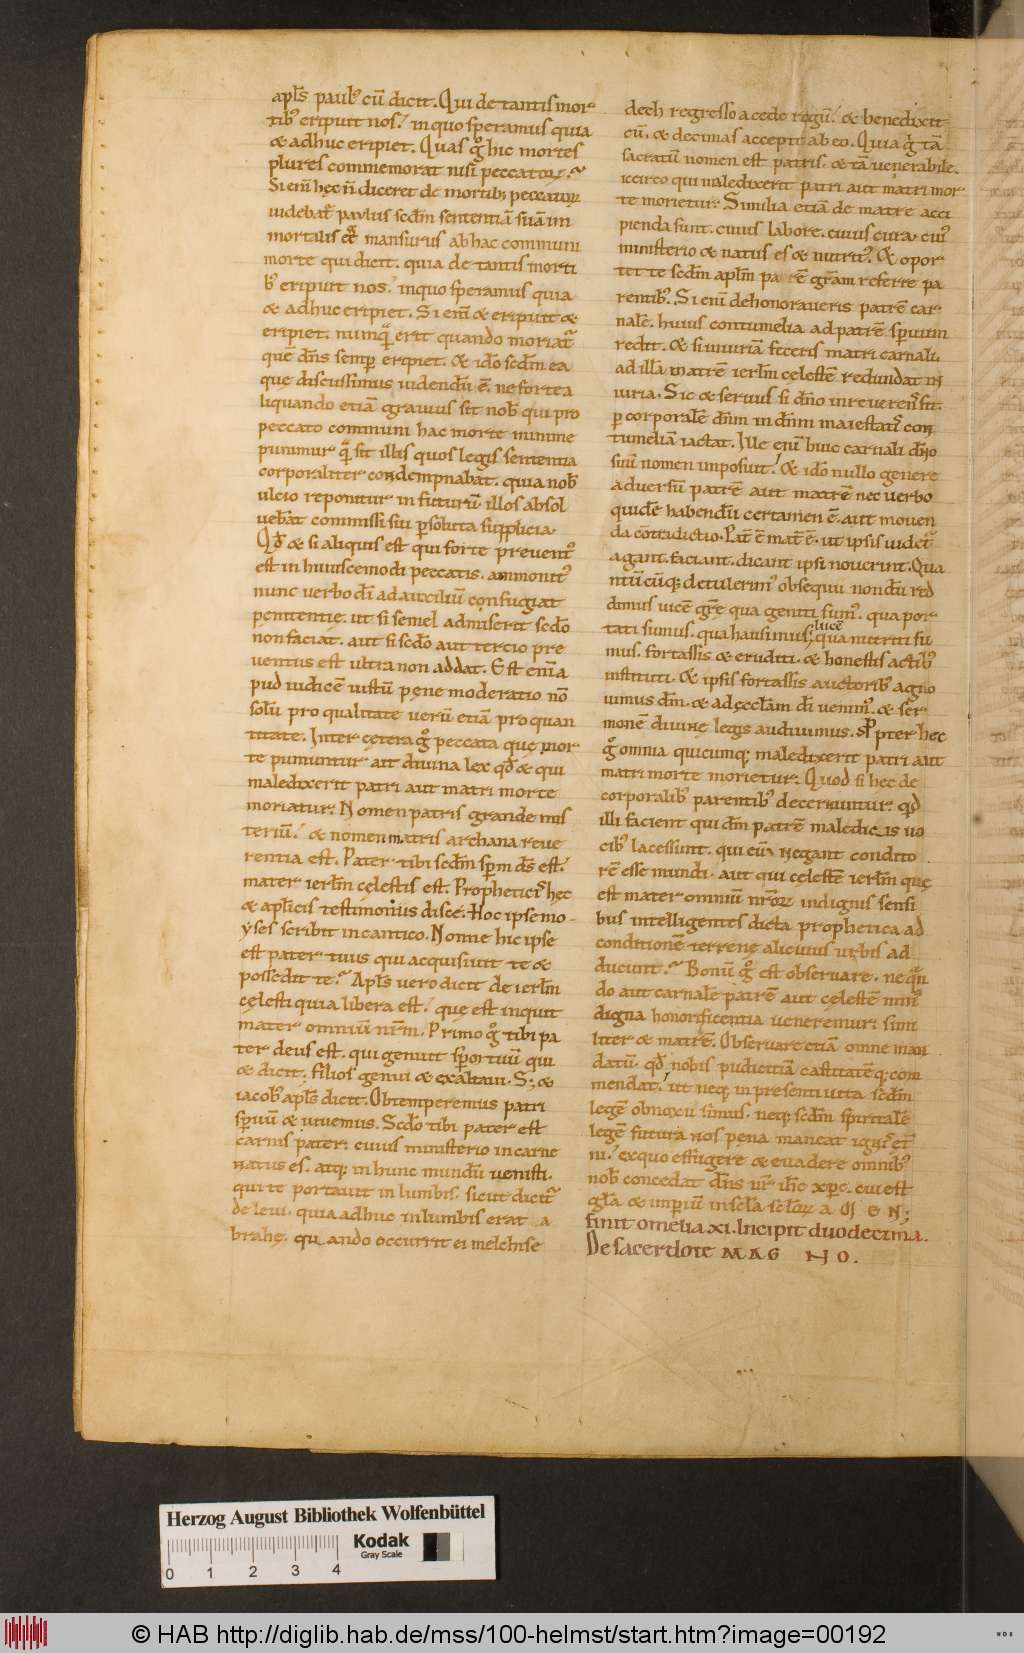 apƚs paulꝰ cū dicit. Qui de tantis mor-
tibꝰ eripuit nos! in quo speramus quia
& adhuc eripiet. Quas gͦ hic mortes
plures commemorat nisi peccatoꝝ?
Si em̄ hęc n̄ diceret de mortibꝫ peccatoꝝ
videbat̃ paulus scd̄m sententiā suā in
mortalis ee mansurus ab hac communi
morte qui dicit. quia de tantis morti
bꝰ eripuit nos! in quo speramus quia
& adhuc eripiet. Si em̄ & eripuit &
eripiet. nunqͣ erit quando moriat̃
quē dn̄s semꝑ eripiet. & idō scd̄m ea
que discussimus uidendū ē. ne forte a
liquando etiā grauius sit nobꝰ qui pro
peccato communi hac morte minime
punimur qͣ sit illis quos legis sententia
corporaliter condempnabat. quia nobꝰ
ulcio reponitur in futurū illos absol
uebat commissi sui ꝑsoluta supplicia.
Qđ & si aliquis est qui forte preuentꝰ
est in huiuscemodi peccatis. ammonitꝰ
nunc uerbo dī ad auxiliū confugiat
penitentię. ut si semel admiserit scdo
non faciat. aut si scdo aut tercio pre
uentus est ultra non addat. Est enī a
pud iudicē iustū pęne moderatio nō
solū pro qualitate uerū etiā pro quan
titate. Inter cętera gͦ peccata quę mor-
te puniuntur ait diuina lex qđ & qui
maledixerit patri aut matri morte
moriatur. Nomen patris grande mis
teriū! & nomen matris archana reue
rentia est. Pater tibi scd̄m spm̄ ds̄ est!
mater ierlm̄ celestis est. Propheticis hęc
& apƚicis testimoniis disce. Hoc ipse mo-
yses scribit in cantico. Nonne hic ipse
est pater tuus qui acquisiuit te &
possedit te? Apƚs uero dicit de ierlm̄
cęlesti quia libera est! quę est inquit
mater omniū nr̄m. Primo gͦ tibi pa
ter deus est. qui genuit spm̄ tuū qui
& dicit. filios genui & exaltaui. Sꝫ &
iacobꝰ apƚs dicit. Obtemperemus patri
spirituū & uiuemus. Scdo tibi pater est
carnis pater. cuius ministerio in carne
natus es. atqꝫ in hunc mundū uenisti.
qui te portauit in lumbis. sicut dicit̃
de leui. quia adhuc in lumbis erat a
brahę. quando occurrit ei melchise
dech regresso a cede regū! & benedixit
eū. & decimas accepit ab eo. Quia gͦ tā
sacratū nomen est patris. & tā uenerabile.
iccirco qui maledixerit patri aut matri mor
te morietur. Similia etiā de matre acci
pienda sunt. cuius labore. cuius cura. cuiꝰ
ministerio & natus es & nutritꝰ. & opor-
tet te scd̄m apƚm parē grām referre pa
rentibꝰ. Si enī dehonoraueris patrē car-
nalē. huius contumelia ad patrē spirituum
redit. & si iniuriam feceris matri carnali.
ad illā matrē ierlm̄ celestē redundat in
iuria. Sic & seruus si dn̄o inreuerens sit.
ꝑ corporalē dn̄m in dn̄m maiestatis con
tumeliā iactat. Ille enī huic carnali dn̄o
suū nomen imposuit! & idō nullo genere
aduersū patrē aut matrē nec uerbo
quidē habendū certamen ē. aut mouen
da contradictio. Pat̃ ē mat̃ ē. ut ipsis uidet̃
agant. faciant. dicant ipsi nouerint. Qua
ntūcūqꝫ detulerimꝰ obsequii nondū red
dimus uicē grē qua geniti sumꝰ. qua por-
tati sumus. qua hausimus lucē qua nutriti su
mus. fortassis & eruditi. & honestis actibꝰ
instituti. & ipsis fortassis auctoribꝰ agno
uimus dm̄. & ad ęcclām dī uenimꝰ. & ser-
monē diuinę legis audiuimus. Ꝓpter hec
gͦ omnia quicumqꝫ maledixerit patri aut
matri morte morietur. Quod si hec de
corporalibꝰ parentibꝰ decernuntur. qđ
illi facient qui dm̄ patrē maledicis uo
cibꝰ lacessunt. qui eū negant condito
rē esse mundi. aut qui celestē ierlm̄ quę
est mater omniū nr̄oꝝ indignis sensi
bus intelligentes dicta prophetica ad
conditionē terrene alicuius urbis ad
ducunt? Bonū gͦ est obseruare. ne qͣn
do aut carnalē patrē aut cęlestē minꝰ
digna honorificentia ueneremur. simi
liter & matrē. Obseruare etiā omne man
datū. qđ nobis pudicitiā castitatēqꝫ com
mendat! ut neqꝫ in presenti uita scd̄m
legē obnoxii simus. neqꝫ scd̄m spiritalē
legē futura nos pena maneat ignis et̃
ni! ex quo effugere & euadere omnibꝰ
nobꝰ concedat dn̄s nr̄ ihc̄ xp̄c. cui est
gƚa & imperiū in scƚa scƚoꝝ a M E N;
finit omelia xi. Incipit duodecima.
De sacerdote MAG NO.
Herzog August Bibliothek Wolfenbüttel
Kodak
Gray Scale
0 1 2 3 4
© HAB http://diglib.hab.de/mss/100-helmst/start.htm?image=00192